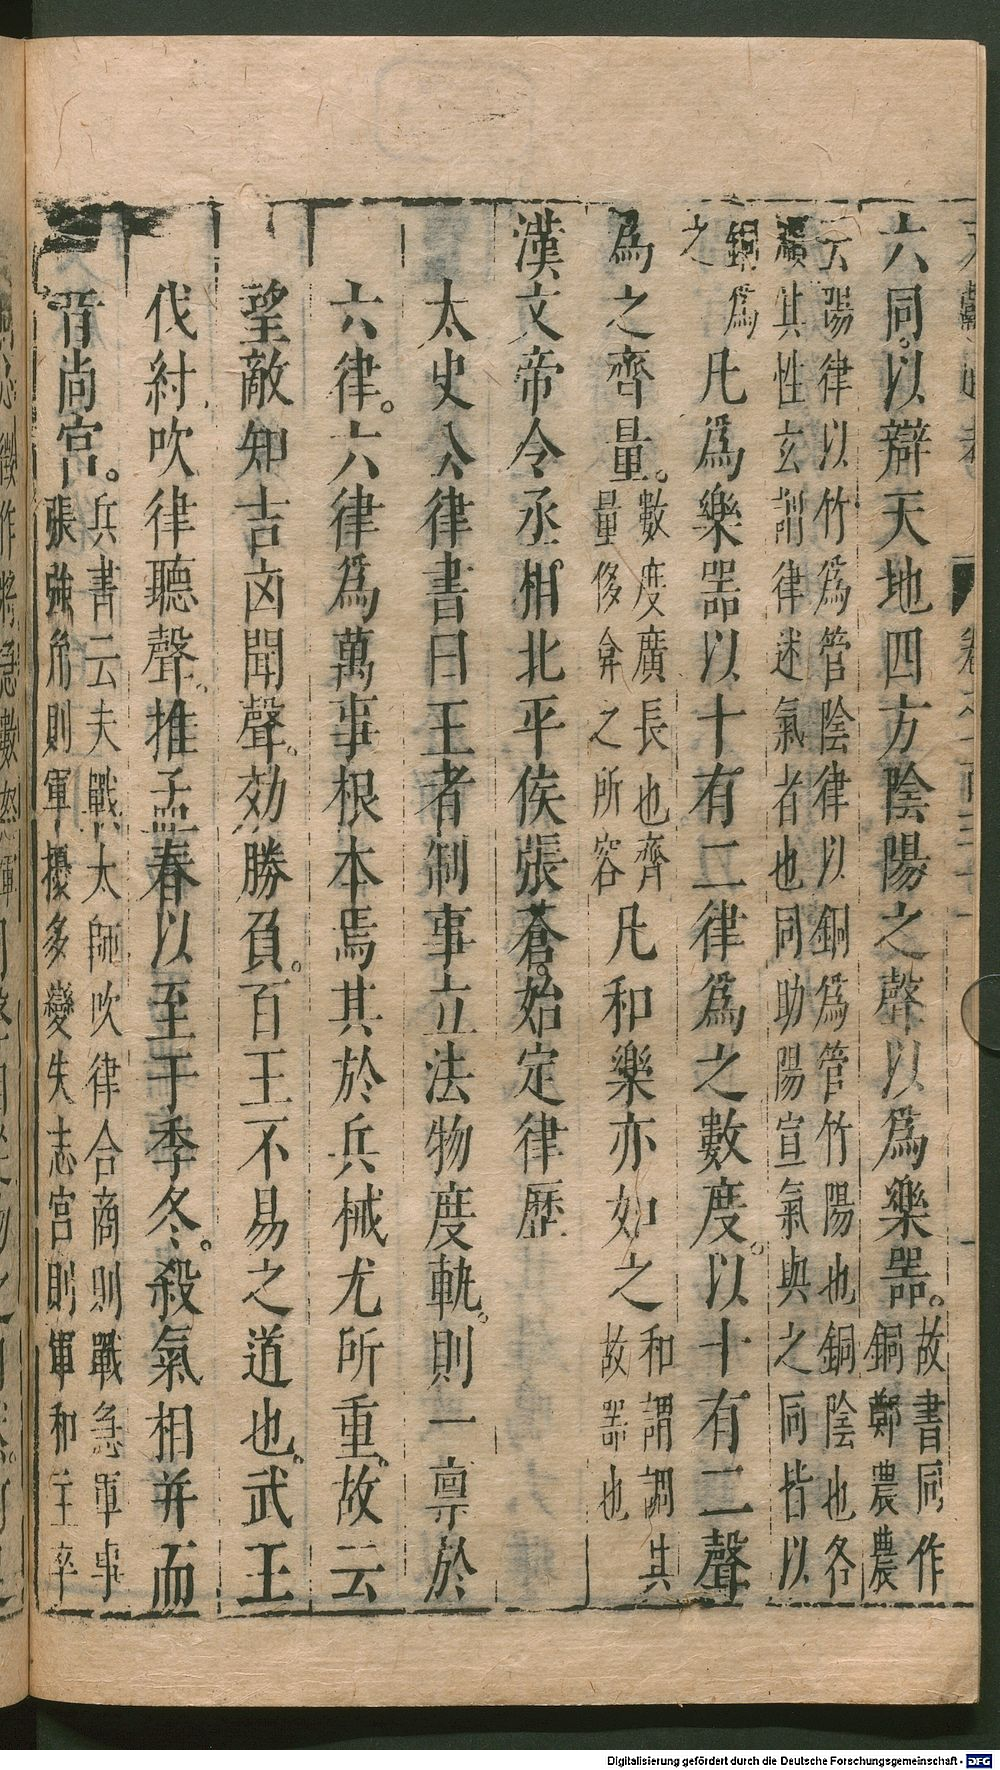 六同。以辯天地四方陰陽之聲以爲樂器。故書同作銅鄭農農
云陽律以竹爲管陰律以銅爲管竹陽也銅陰也各
順其性玄謂律述氣者也同助陽宣氣與之同皆以
銅爲之凡爲樂器以十有二律爲之數度。以十有二聲
爲之齊量。數度廣長也齊量侈弇之所容凡和樂亦如之和謂調其故器也
漢文帝令丞相北平侯張蒼。始定律歷
太史公律書曰王者制事立法物度軌。則一禀於
六律。六律爲萬事根本焉其於兵械尤所重。故云
望敵知吉凶聞聲。効勝負。百王不易之道也。武王
伐紂吹律聽聲。推孟春以至于季冬。殺氣相并而
音尚宮。兵書云夫戰太師吹律合商則戰急軍事張強角則軍擾多變失志宮則軍和主卒
Digitalisierung gefördert durch die Deutsche Forschungsgemeinschaft - DFG